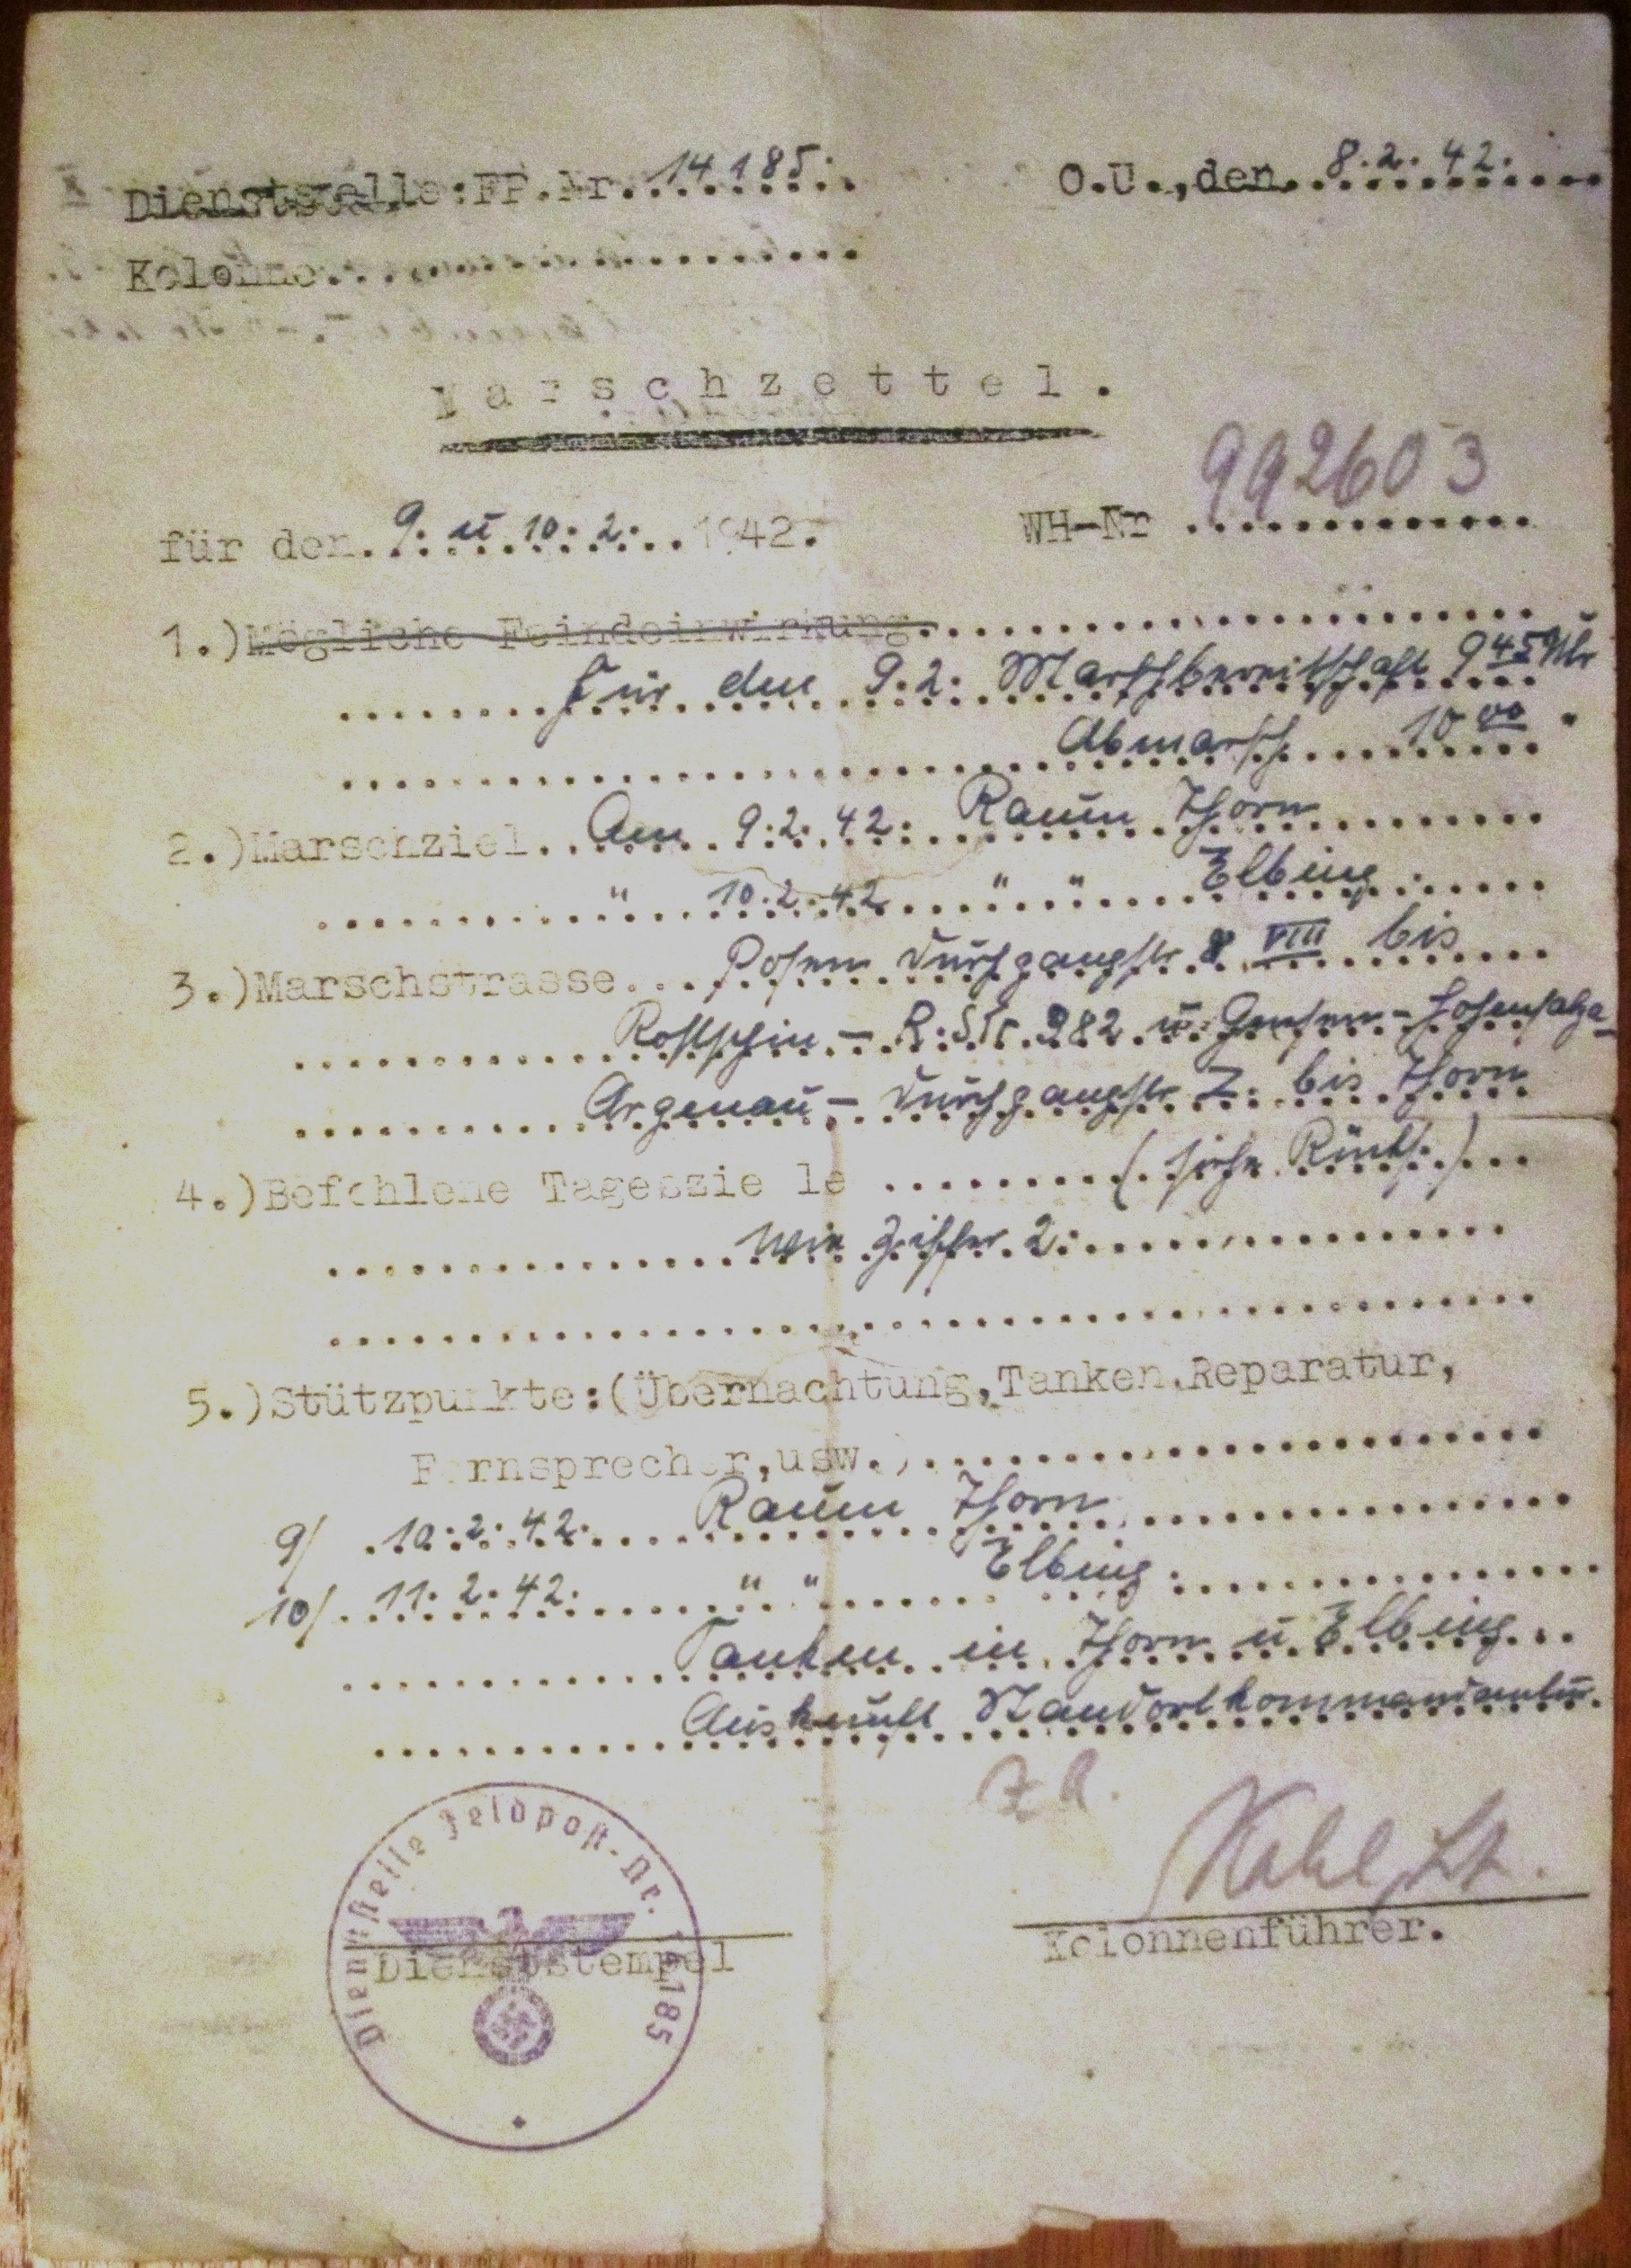 Dienststelle: FP.Nr. 14185.
O.U., den 8.2.42.
Kolonne
Marschzettel.
992603
für den 9. u 10.2. 1942.
WH-Nr
1.) Mögliche Feindeinwirkung
Für den 9.2. Marschbereitschaft 9 45 Uhr
Abmarsch 10 00 "
2.) Marschziel Am 9.2.42. Raum Thorn
" 10.2.42 " " Elbing
3.) Marschstrasse Posen Durchgangstr VIII bis
- R.Str. 282 u. Gnesen - Hohensalza -
Argenau - Durchgangstr Z. bis Thorn
4.) Befohlene Tagesziele (siehe Rücks.)
wie Ziffer 2.
5.) Stützpunkte: (Übernachtung, Tanken, Reparatur,
Fernsprecher, usw.)
9/ 10.2.42. Raum Thorn
10/ 11.2.42. " " Elbing.
Tanken in Thorn u Elbing
Auskunft Standortkommandantur.
Kahl Lt.
Kolonnenführer.
Dienststelle Feldpost-Nr. 14185
Dienststempel